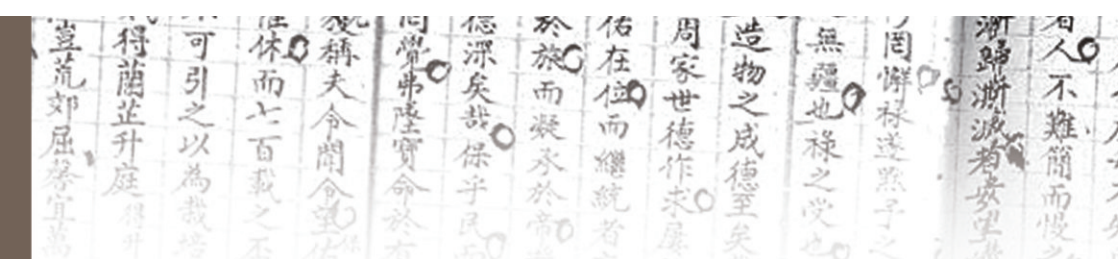 人不難簡而慢之
漸歸澌滅者安望
罔懈祿遂
無疆也祿之受也
造物之成德至矣
周家世德作求
佑在位而繼統者
於旅而凝承於帝
德深矣哉保乎民
問覺弗墜寶命於有
稱夫令聞令望佑
休而七百載之丕
可引之以為栽培
得蘭芷升庭得升
豈荒郊屈馨宜萬